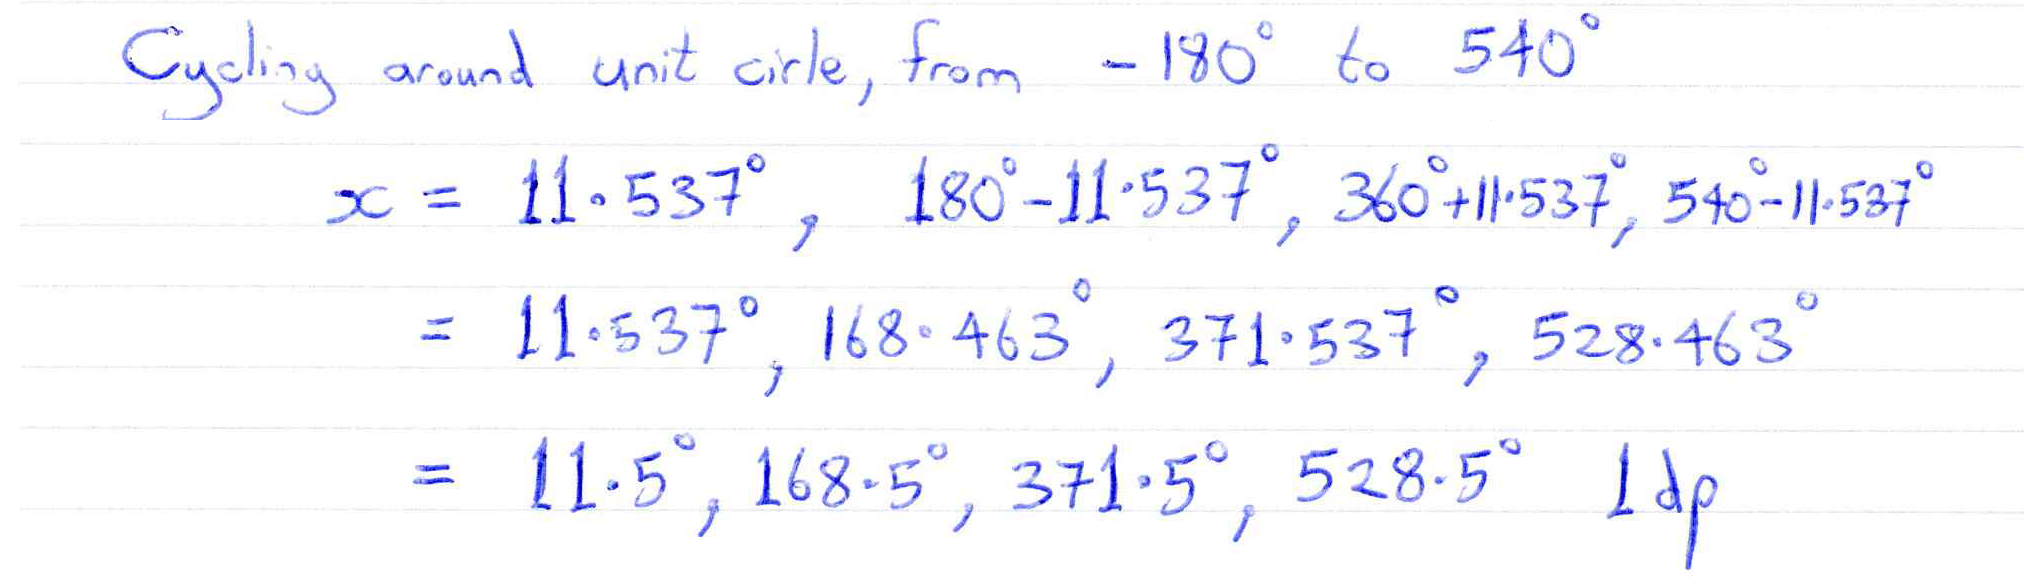 Cycling around unit cirle, from -180° to 540°
x = 11.537°, 180°-11.537°, 360°+11.537°, 540°-11.537°
= 11.537°, 168.463°, 371.537°, 528.463°
= 11.5°, 168.5°, 371.5°, 528.5° 1dp